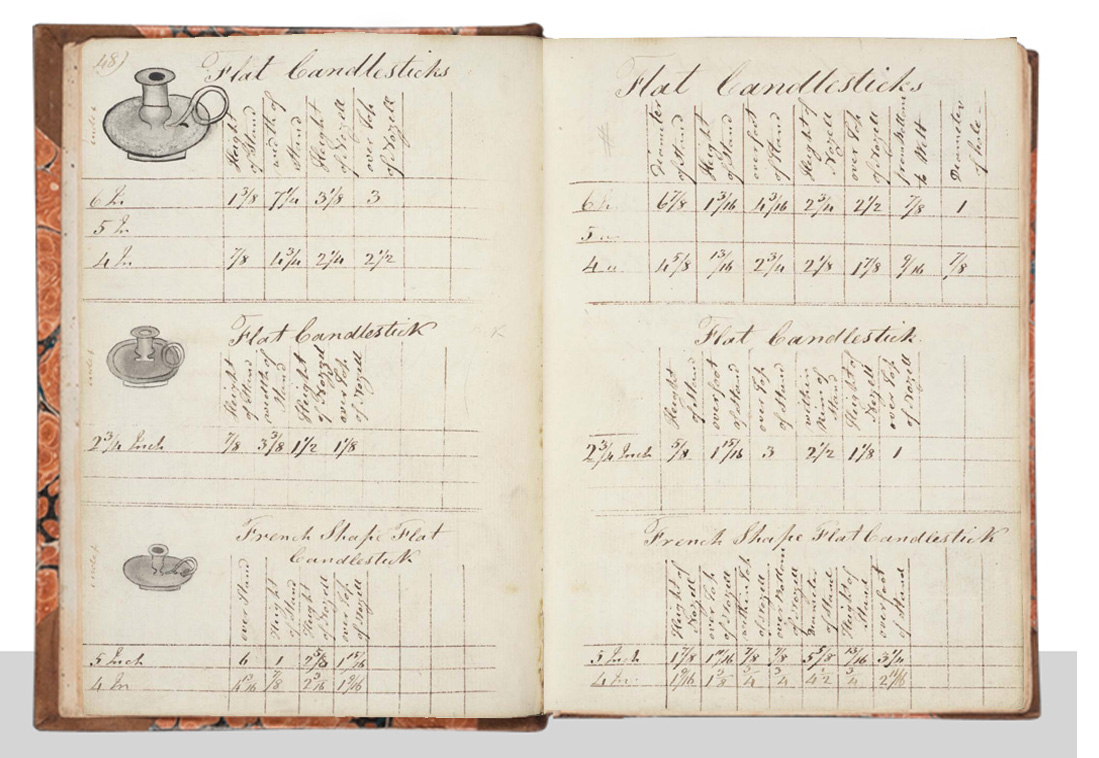 48)
Flat Candlesticks
Height of Stand
width of Stand
Height of Nozell
over Top of Nozell
6 In 1 3/8 7 1/4 3 1/8 3
5 In
4 In 7/8 4 3/4 2 1/4 2 1/2
Flat Candlestick
Height of Stand
width of Stand
Height of Nozzel
over Top of Nozell
2 3/4 Inch 7/8 3 3/8 1 1/2 1 1/8
French Shape Flat
Candlestick
over Stand
Height of Stand
Height of Nozell
over Top of Nozell
5 Inch 6 1 2 5/8 1 15/16
4 In 7/8 2 3/16 1 9/16
Flat Candlesticks
Diameter of Stand
Height of Stand
over foot of Stand
Height of Nozell
over Top of Nozell
from Bottom to Welt
Diameter of hole
6 In 6 7/8 1 3/16 4 3/16 2 3/4 2 1/2 7/8 1
5
4 4 5/8 13/16 2 3/4 2 1/8 1 7/8 9/16 7/8
Flat Candlestick
Height of Stand
over foot of Stand
over Top of Stand
within Rim of Stand
Height of Nozell
over Top of Nozell
2 3/4 Inch 5/8 1 15/16 3 2 1/2 1 1/8 1
French Shape Flat Candlestick
Height of Nozell
over Top of Nozell
within Top of Nozell
over Bottom of Nozell
Diameter of Stand
Height of Stand
over foot of Stand
5 Inch 1 7/8 1 11/16 7/8 7/8 5 5/8 13/16 3 1/4
4 In 1 3/8 3/4 3/4 4 1/2 3/4 2 11/16